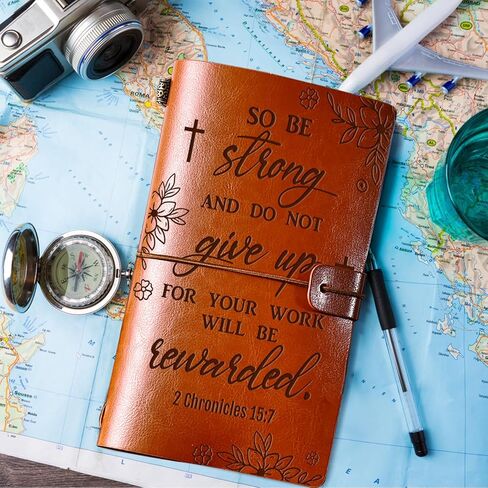 SO BE
strong
AND DO NOT
give up
FOR YOUR WORK
WILL BE
rewarded.
2 Chronicles 15:7
ROMA